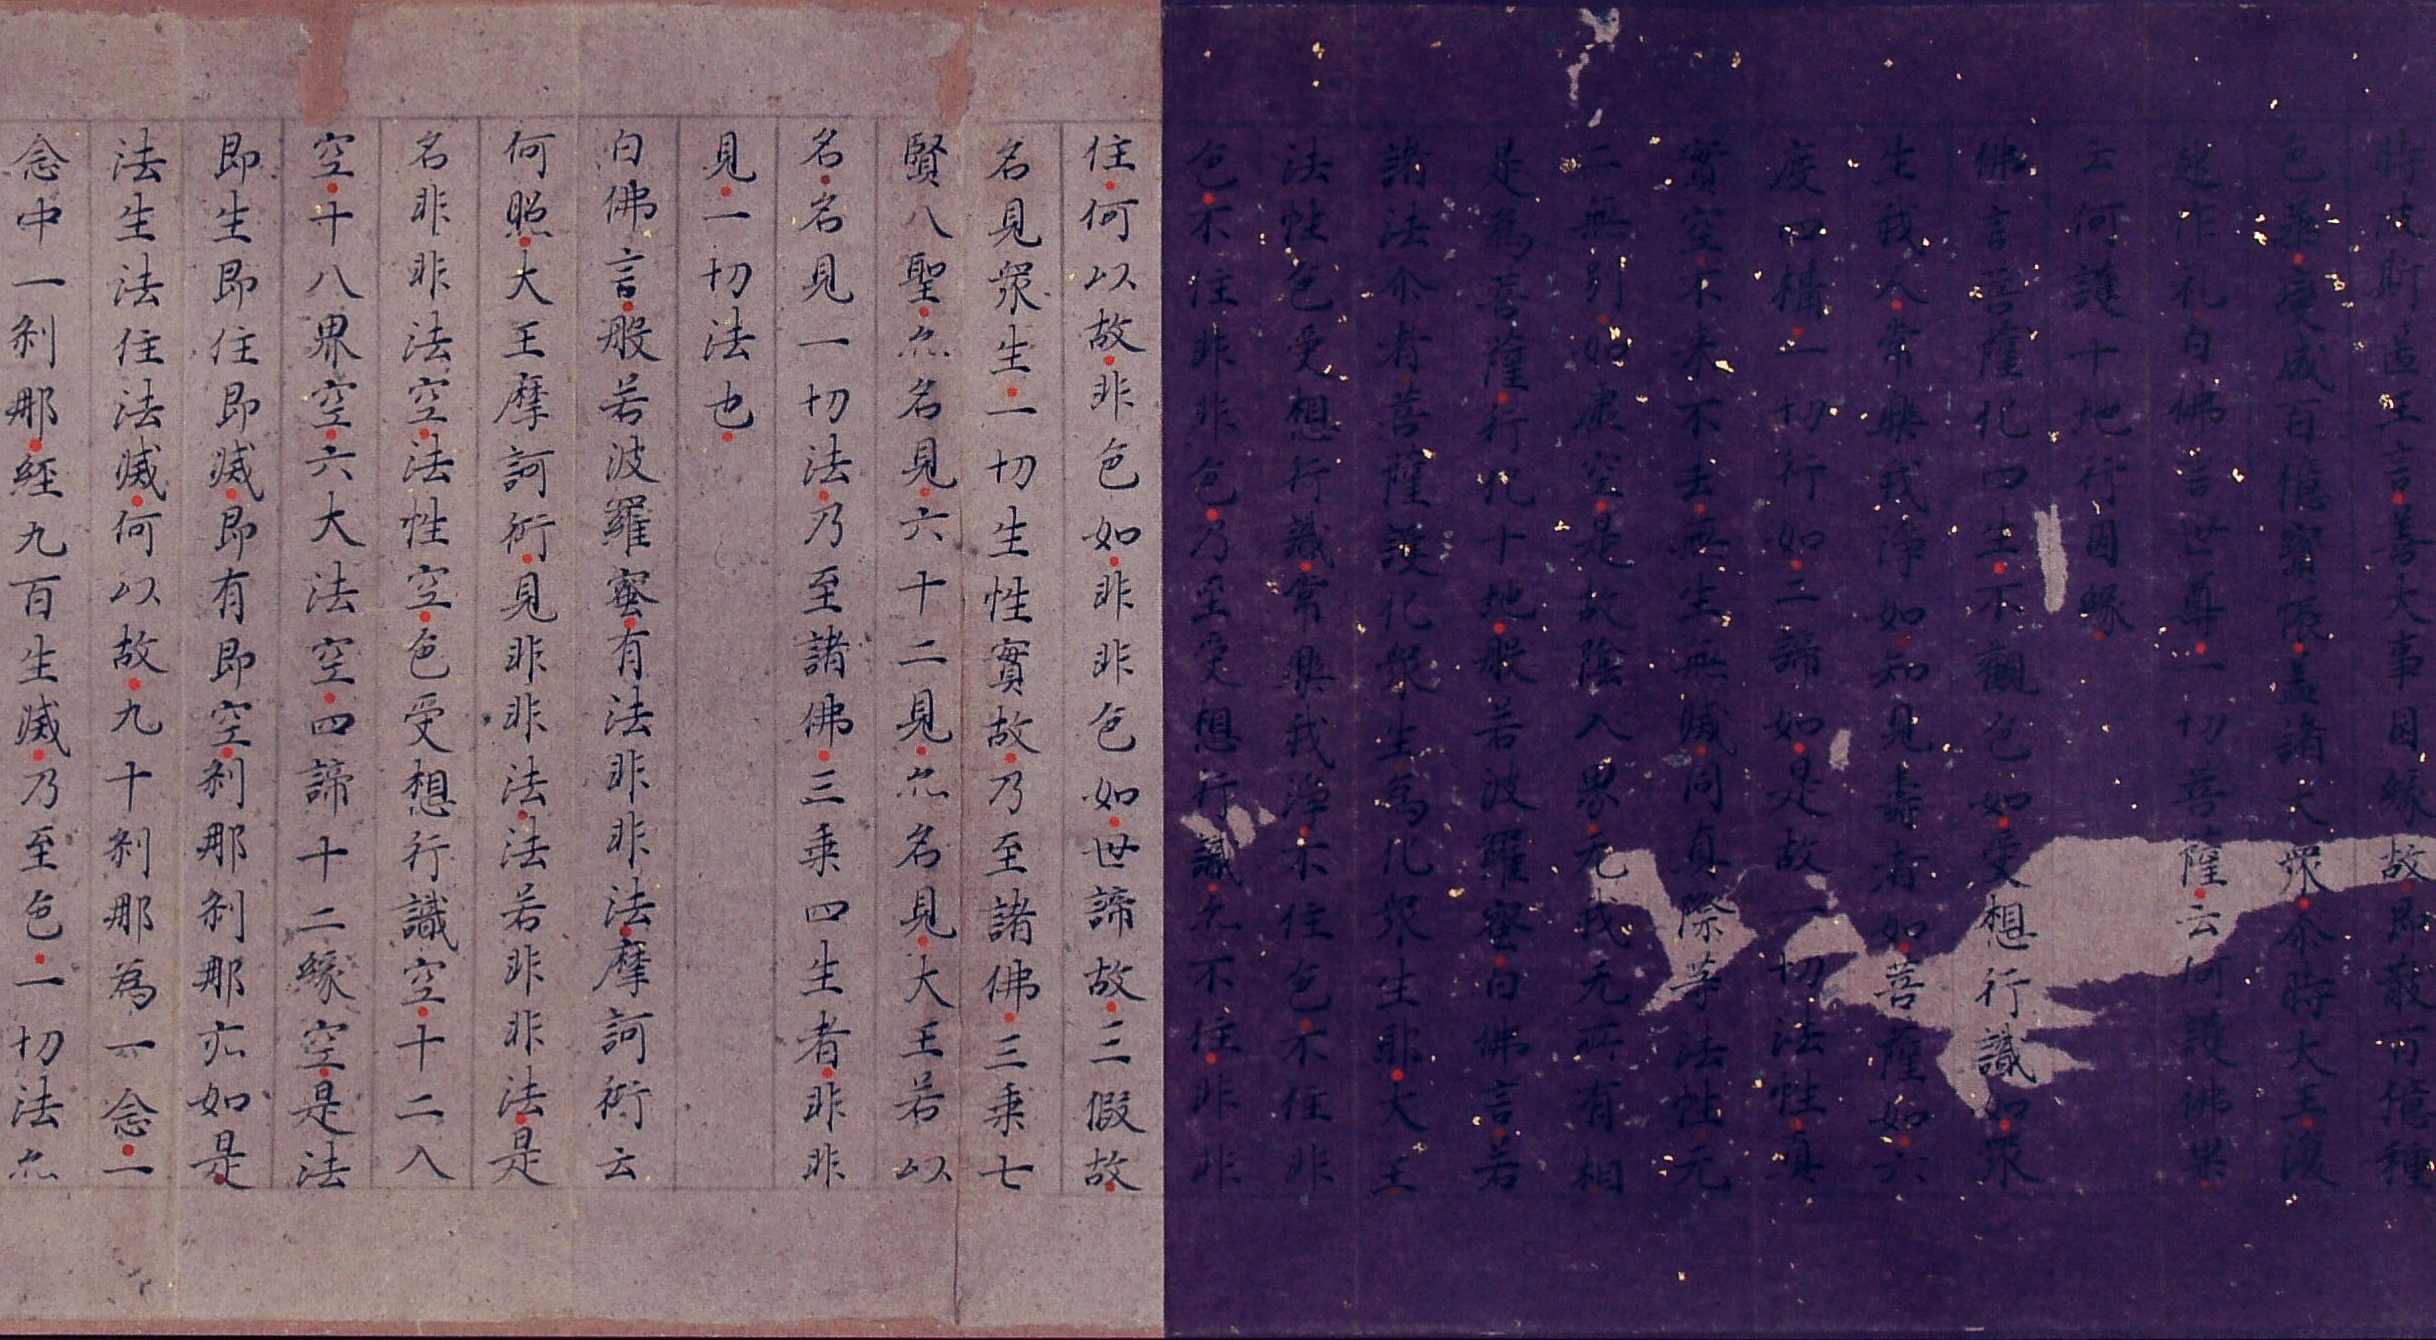 時波斯匿王言善大事因緣故即散百億種
色華變成百億寶帳蓋諸大眾尒時大王復
起作礼白佛言世尊一切菩薩云何護佛果
云何護十地行因緣
佛言菩薩化四生不觀色如受想行識如眾
生我人常樂我淨如知見壽者如菩薩如六
度四攝一切行如二諦如是故一切法性真
實空不来不去無生無滅同真際等法性无
二無別如虛空是故陰入界无我无所有相
是為菩薩行化十地般若波羅蜜白佛言若
諸法尒者菩薩護化眾生為化眾生耶大王
法性色受想行識常樂我淨不住色不住非
色不住非非色乃至受想行識亦不住非非
住何以故非色如非非色如世諦故三假故
名見眾生一切生性實故乃至諸佛三乘七
賢八聖亦名見六十二見亦名見大王若以
名名見一切法乃至諸佛三乘四生者非非
見一切法也
白佛言般若波羅蜜有法非非法摩訶衍云
何照大王摩訶衍見非非法法若非非法是
名非非法空法性空色受想行識空十二入
空十八界空六大法空四諦十二緣空是法
即生即住即滅即有即空剎那剎那亦如是
法生法住法滅何以故九十剎那為一念一
念中一剎那經九百生滅乃至色一切法亦